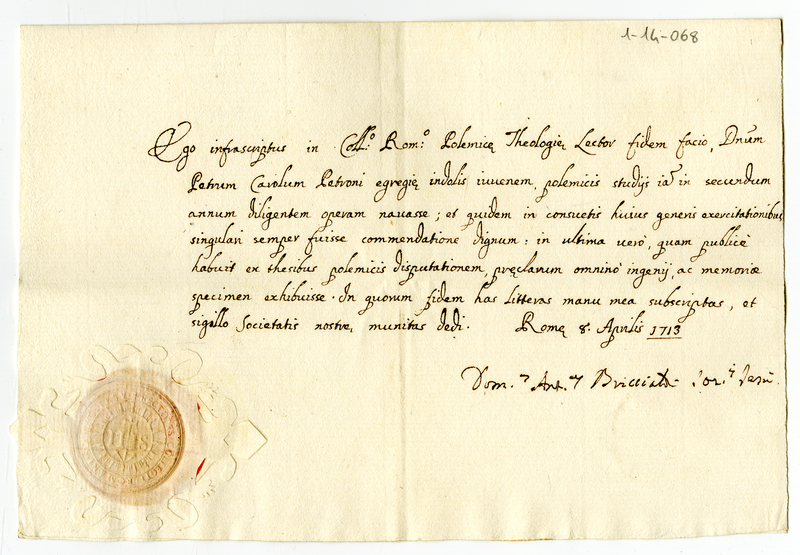 1-14-068
Ego infrascriptus in Coll:º Rom:º Polemicę Theologię Lector fidem facio, Dnum
Petrum Carolum Petroni egregię indolis iuvenem, polemicis studijs iā in secundum
annum diligentem operam navasse; et quidem in consuetis huius generis exercitationibus
singulari semper fuisse commendatione dignum: in ultima vero, quam publicè
habuit ex thesibus polemicis disputationem, pręclarum omninò ingenij, ac memoriæ
specimen exhibuisse. In quorum fidem has litteras manu mea subscriptas, et
sigillo Societatis nostrę munitas dedi. Romę 8. Aprilis 1713
Dom. Ant. Jesu
IHS